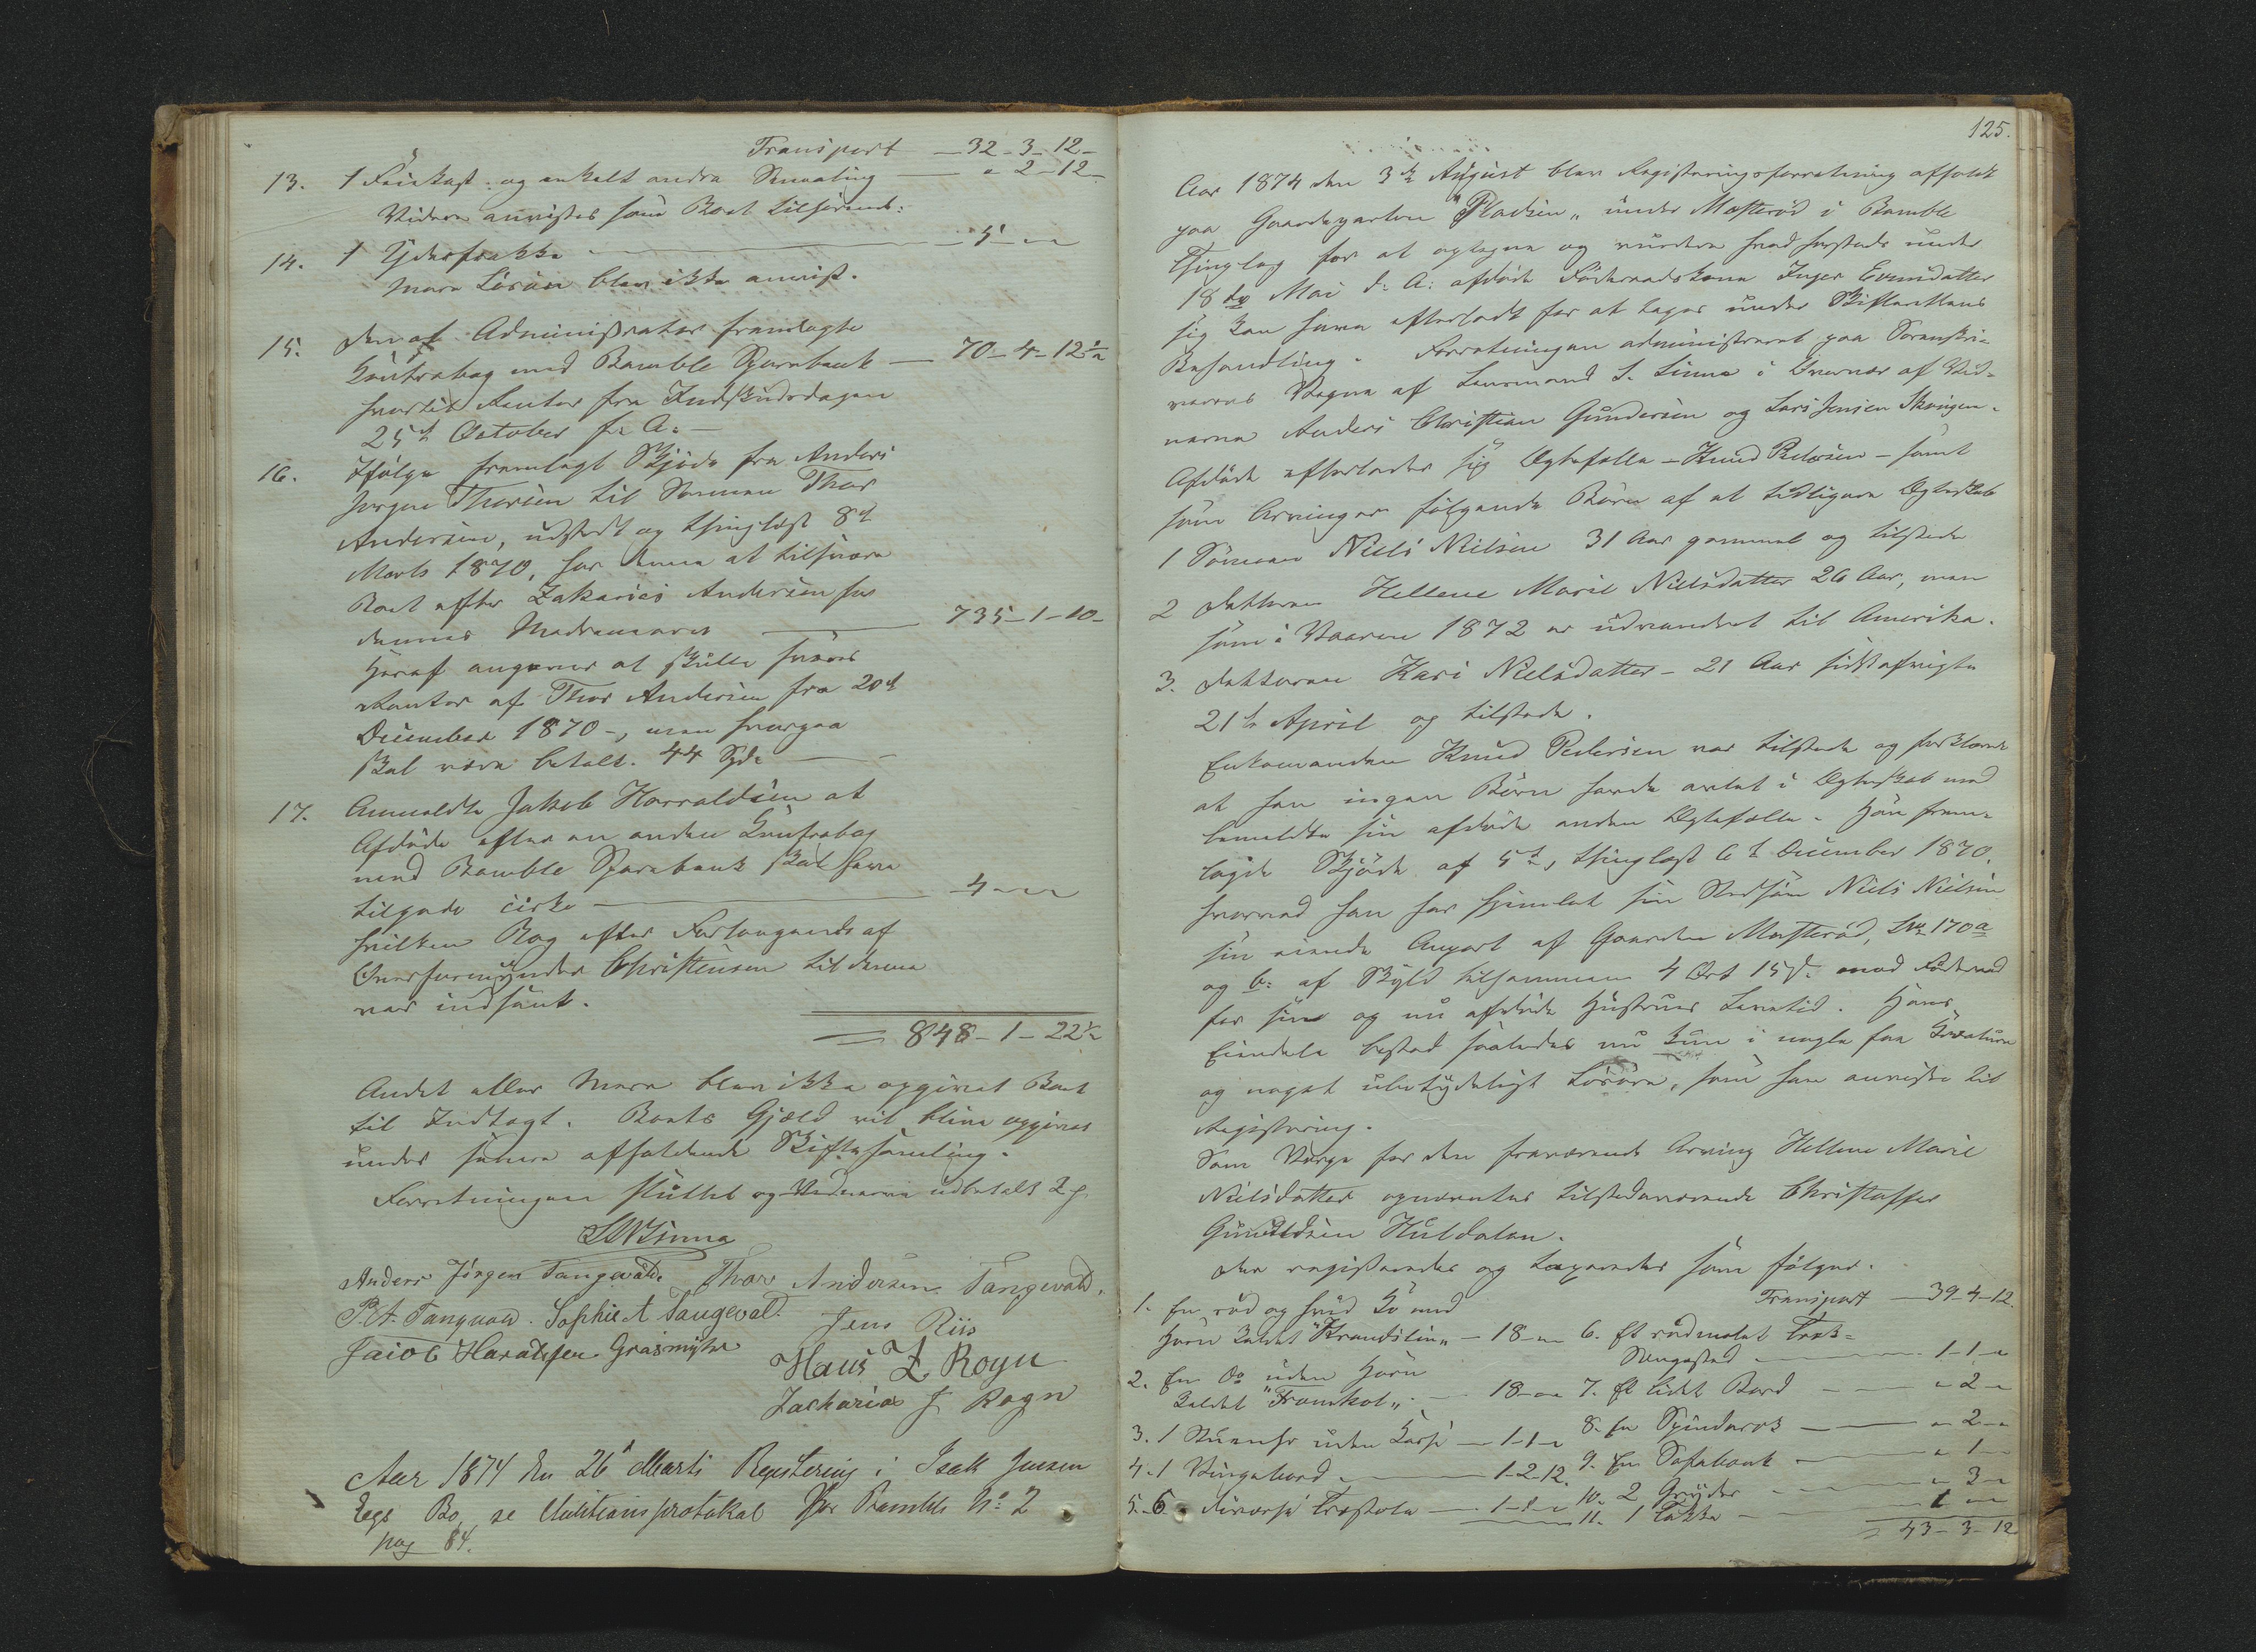 Transport — 32-3-12-
13. 1 Feiekost og enkelt andre Smaating — " 2-12-
Videre anvistes som Boet tilhørende:
14. 1 Ydrefrakke — 5 - "
mere Løsøre blev ikke anvist.
15. Den af Administrator fremlagte
Contrabog med Bamble Sparebank — 70-4-12½
hvortil Renter fra Indskudsdagen
25de October f. A. —
16. Ifølge fremlagt Skjøde fra Anders
Jørgen Thorsen til Sønnen Thor
Andersen, udstedt og thinglæst 8de
Marts 1870, har denne at tilsvare
Boet efter Zakarias Andersen for
dennes Mødrenearv — 735-1-10-
Heraf angaves at skulle svares
Renter af Thor Andersen fra 20de
December 1870 -, men hvorpaa
skal være betalt. 44 Spd. —
17. Anmeldte Jakob Harraldsen at
Afdøde efter en anden Contrabog
med Bamble Sparebank skal have
tilgode cirka — 4 - " "
hvilken Bog efter Forlangende af
Overformynder Christensen til denne
var indsent.
= 848-1-22½
Andet eller mere blev ikke opgivet Boet
til Indtægt. Boets Gjæld vil blive opgivet
under senere afholdende Skiftesamling.
Forretningen sluttet og Vidnerne udbetalt 2
S Linna
Anders Jørgen Tangevald. Thor Andersen Tangevald.
P. A. Tangvald. Sophie A Tangevald. Jens Riis
Jacob Haraldsen Grasmyhr Hans Z. Rogn
Zacharias J Rogn
Aar 1874 den 26de Marts Registering i Isak Jensen
Eegs Bo, se Auktionsprotokol for Bamble No 2
pag 84.
125.
Aar 1874 den 3de August blev Registreringsforretning afholdt
paa Gaardeparten "Pladsen" under Mosterød i Bamble
Thinglag for at optegne og vurdere hvad herstede under
18de Mai d: A: afdøde Føderaadskone Inger Evensdatter
sig kan have efterladt for at tages under Skifterettens
Behandling. Forretningen administreret paa Sorenskri-
verens Vegne af Lensmand S. Linna i Overvær af Vid-
nerne Anders Christian Gundersen og Lars Jensen Skougen.
Afdøde efterlader sig Ægtefælle — Knud Pedersen — samt
som Arvinger følgende Børn af et tidligere Ægteskab
1 Sønnen Niels Nielsen 31 Aar gammel og tilstede
2 Datteren Hellene Marie Nielsdatter 26 Aar, men
som i Vaaren 1872 er udvandret til Amerika.
3. Datteren Kari Nielsdatter — 21 Aar sidstafvigte
21de April og tilstede.
Enkemanden Knud Pedersen var tilstede og forklarede
at han ingen Børn havde avlet i Ægteskab med
bemeldte sin afdøde anden Ægtefælle. Han frem-
lagde Skjøde af 5te, thinglæst 6te December 1870,
hvorved han har hjemlet sin Stedsøn Niels Nielsen
sin eiende Anpart af Gaarden Mosterød, Lno 170 a
og b: af Skyld tilsammen 4 Ort 15 s. mod Føderaad
for sin og nu afdøde Hustrues Levetid. Hans
Eiendele bestod saaledes nu kun i nogle faa Kreature
og noget ubetydeligt Løsøre, som han anviste til
Registrering.
Som Værge for den fraværende Arving Hellene Marie
Nielsdatter opnævntes tilstedeværende Christoffer
Gundersen Huldalen.
Der registreredes og taxeredes som følger.
1. En rød og hvid Ko med
Horn kaldet "Krandslin" — 18 - " "
2. En Do uden Horn
kaldet "Framkol" — 18 - " "
3. 1 Stueuhr uden Kasse — 1-1-"
4. 1 Vingebord — 1-2-12.
5. 6 diverse Træstole — 1-1-"
Transport — 39-4-12.
6. Et rødmalet Træ-
Sengested — 1-1-"
7. Et lidet Bord — " 2 - "
8. En Spinderok — " 2 - "
9. En Sofabænk — " 1 - "
10. 2 Gryder — " 3 - "
11. 1 Takke — 1 - "
= 43-3-12